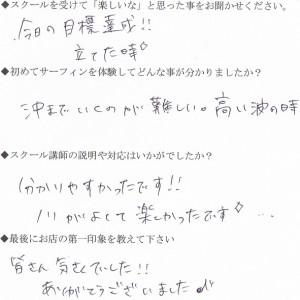 ◆スクールを受けて「楽しいな」と思った事をお聞かせください。
今日の目標達成!!
立てた時
◆初めてサーフィンを体験してどんな事が分かりましたか?
沖までいくのが難しい。高い波の時
◆スクール講師の説明や対応はいかがでしたか?
分かりやすかったです!!
ノリがよくて楽しかったです…
◆最後にお店の第一印象を教えて下さい
皆さん 気さくでした!!
ありがとうございました